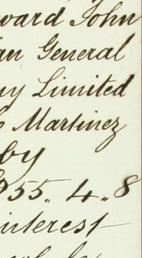 ward John
an General
ny Limited
Martinez
by
955. 4. 8
interest